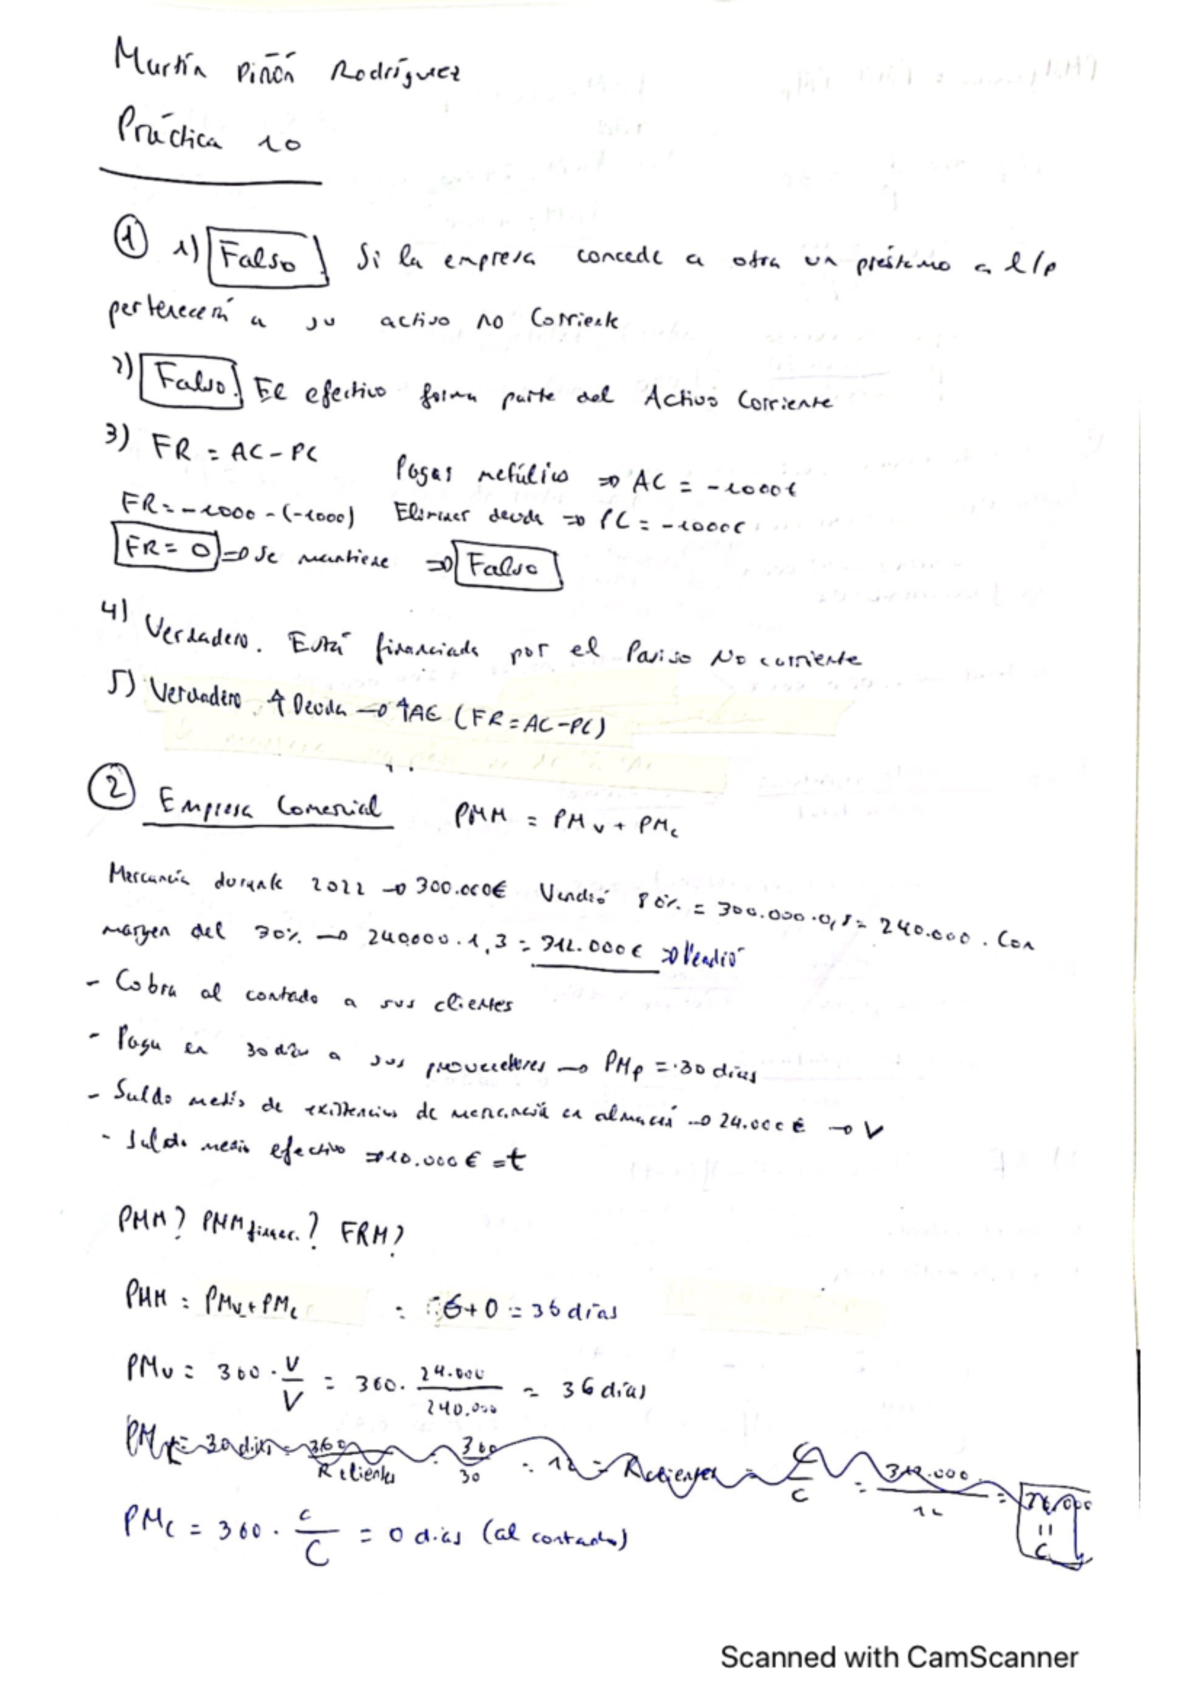 Martín Piñón Rodríguez
Práctica 10
① 1) Falso. Si la empresa concede a otra un préstamo a l/p
pertenecerá a su activo no Corriente
2) Falso. El efectivo forma parte del Activo Corriente
3) FR = AC - PC Pagas metálico => AC = -1000€
FR = -1000 - (-1000) Eliminar deuda => PC = -1000€
FR = 0 => Se mantiene => Falso
4) Verdadero. Está financiada por el Pasivo No corriente
5) Verdadero. ↑ Deuda → ↑AC (FR = AC - PC)
② Empresa Comercial PMM = PMv + PMc
Mercancía durante 2022 → 300.000€ Vendió 80% = 300.000 · 0,8 = 240.000. Con
margen del 30% → 240.000 · 1,3 = 312.000€ => Vendió
- Cobra al contado a sus clientes
- Paga en 30 días a sus proveedores → PMp = 30 días
- Saldo medio de existencias de mercancía en almacén → 24.000€ → v
- Saldo medio efectivo => 10.000€ = t
PMM? PMM financ.? FRM?
PMM = PMv + PMc = 36 + 0 = 36 días
PMv = 360 · v/V = 360 · 24.000/240.000 = 36 días
PMc = 30 días = 360/R clientes = 360/30 = 12 = R clientes = C/c = 312.000/12 = 26.000 = c
PMc = 360 · c/C = 0 días (al contado)
Scanned with CamScanner